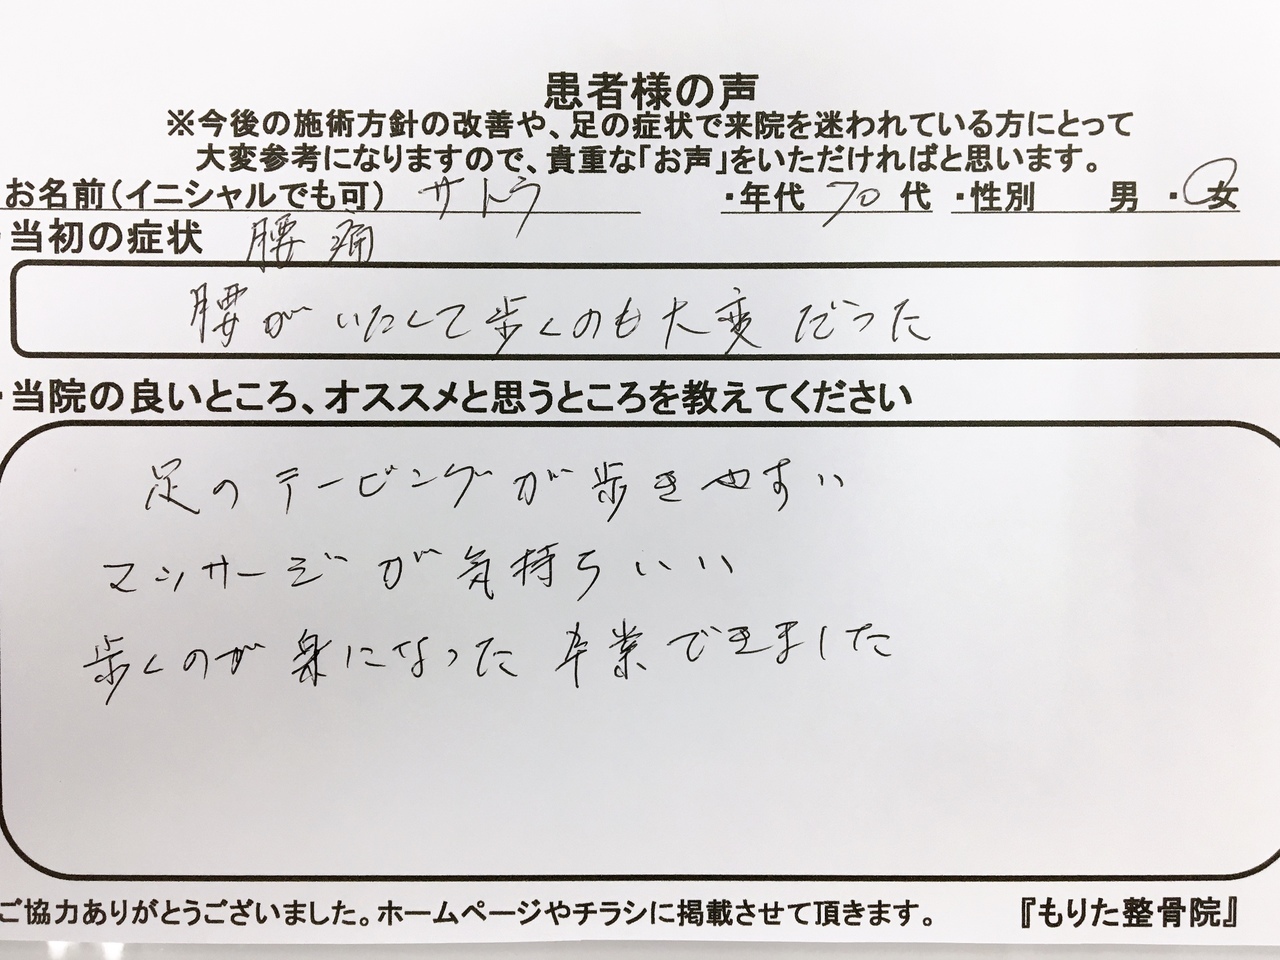 患者様の声
※今後の施術方針の改善や、足の症状で来院を迷われている方にとって
大変参考になりますので、貴重な「お声」をいただければと思います。
お名前(イニシャルでも可) サトウ ・年代 70 代 ・性別 男 ・ 女
・当初の症状 腰痛
腰がいたくて歩くのも大変だった
・当院の良いところ、オススメと思うところを教えてください
足のテーピングが歩きやすい
マッサージが気持ちいい
歩くのが楽になった 卒業できました
ご協力ありがとうございました。ホームページやチラシに掲載させて頂きます。 『もりた整骨院』